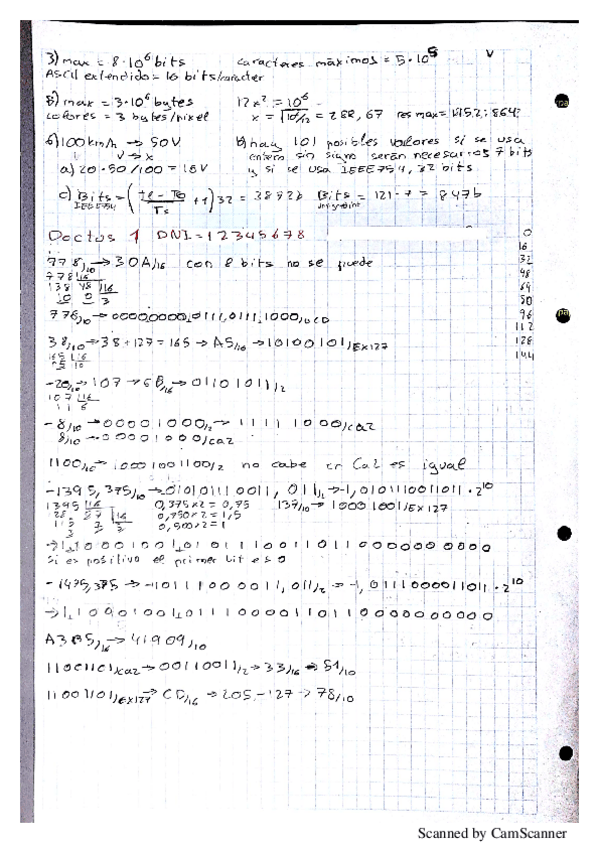 3) max = 8·10⁶ bits caracteres máximos = 5·10⁵ v
ASCII extendido = 16 bits/caracter
8) max = 3·10⁶ bytes 12x² = 10⁶
colores = 3 bytes/pixel x = = 288,67 res max =
6) 100 km/h → 50V b) hay 101 posibles valores si se usa
v → x entero sin signo serán necesarios 7 bits
a) 20·50/100 = y si se usa IEEE754, 32 bits
c) Bits IEEE754 = ( +1) 32 = 3892b Bits = 121·7 = 847b
Doctus 1 DNI=12345678
0
16
778/10 → 30A/16 con 8 bits no se puede 32
778 16 48
138 48 16 64
10 0 3 80
776/10 → 0000,0000,0111,0111,1000/BCD 96
112
38/10 → 38+127=165 → A5/16 → 10100101/EX127 128
165 16 144
-20/10 → 107 → 6B/16 → 01101011/2
107 16
11 6
-8/10 → 00001000/2 → 11111000/Ca2
8/10 → 00001000/Ca2
1100/16 → 1000100/2 no cabe en Ca2 es igual
-1395,375/10 → 010101110011,011/2 → -1,0101110011011·2¹⁰
1395 16 0,375×2 = 0,75 137/10 → 10001001/EX127
0,750×2 = 1,5
0,500×2 = 1
→ 1,10001001,01011100110110000000000
si es positivo el primer bit es 0
-1475,375 → -10111000011,011/2 → -1,0111000011011·2¹⁰
→ 1,10001001,01110000110110000000000
A3B5/16 → 41909/10
11001101/Ca2 → 00110011/2 → 33/16 → 51/10
11001101/EX127 → CD/16 → 205-127 → 78/10
Scanned by CamScanner